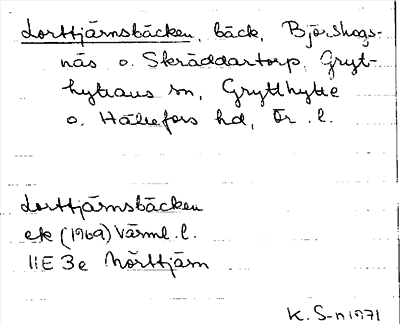 Lorttjärnsbäcken, bäck, Björskogs-
näs o. Skräddartorp, Gryt-
hyttans sn, Grythytte
o. Hällefors hd, Ör. l.
Lorttjärnsbäcken
ek (1969) Värml. l.
11E 3e Mörttjärn
K. S-n 1971